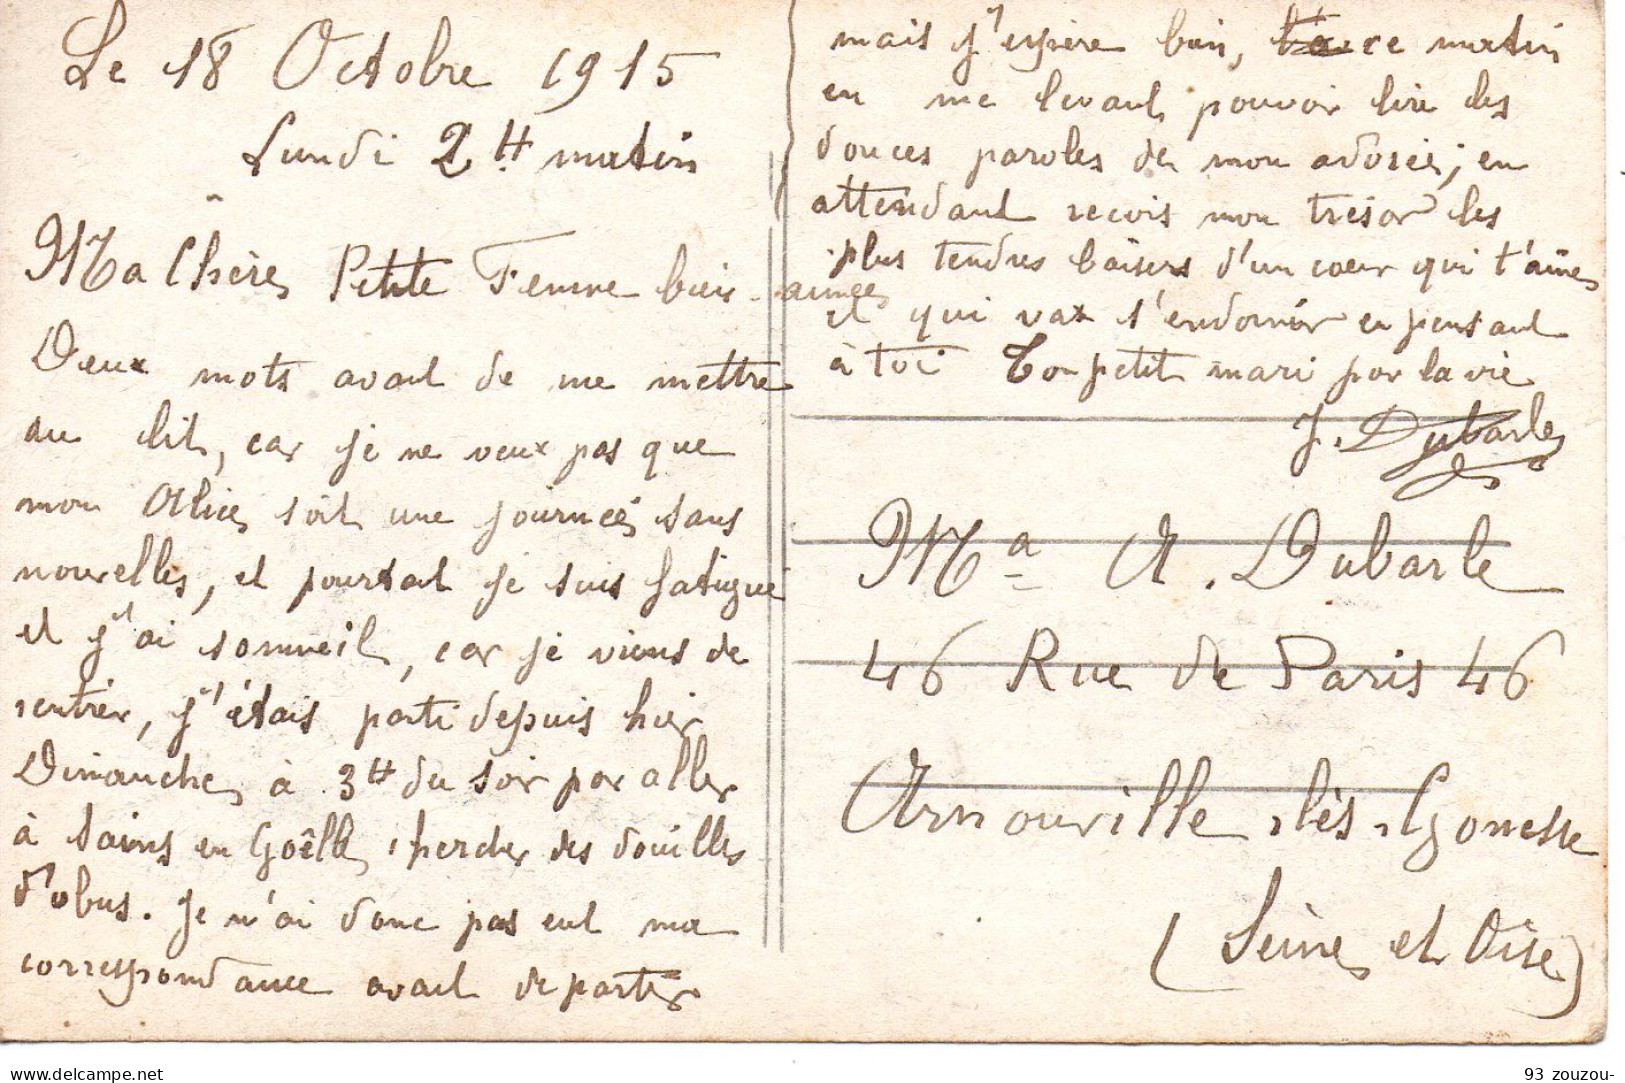 Le 18 Octobre 1915
Lundi 2H. matin
Ma Chère Petite Femme bien-aimée
Deux mots avant de me mettre
au lit, car je ne veux pas que
mon Alice soit une journée sans
nouvelles, et pourtant je suis fatigué
et j'ai sommeil, car je viens de
rentrer, j'étais parti depuis hier
Dimanche à 3H du soir par aller
à Sains en Goêlle chercher des douilles
d'obus. Je n'ai donc pas eut ma
correspondance avant de partir
mais j'espère bien, ce matin
en me levant pouvoir lire des
douces paroles de mon adorée; en
attendant recois mon trésor les
plus tendres baisers d'un coeur qui t'aime
et qui vas s'endormir en pensant
à toi Ton petit mari par la vie
J. Dubarle
Ma A. Dubarle
46 Rue de Paris 46
Arnouville-lès-Gonesse
(Seine et Oise)
www.delcampe.net
93 zouzou-